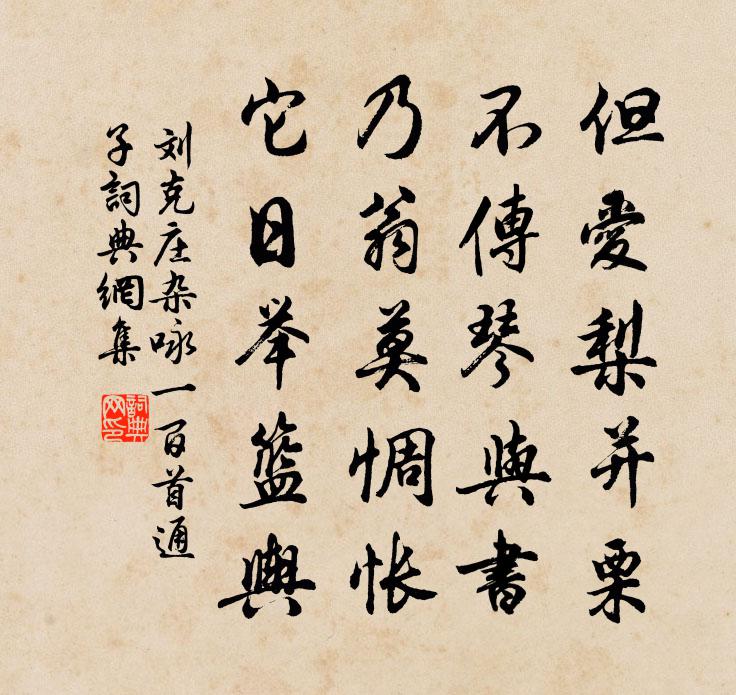 但愛梨并栗
不傳琴與書
乃翁莫惆怅
它日举籃輿
刘克庄杂咏一百首通
子詞典網集
詞典网印